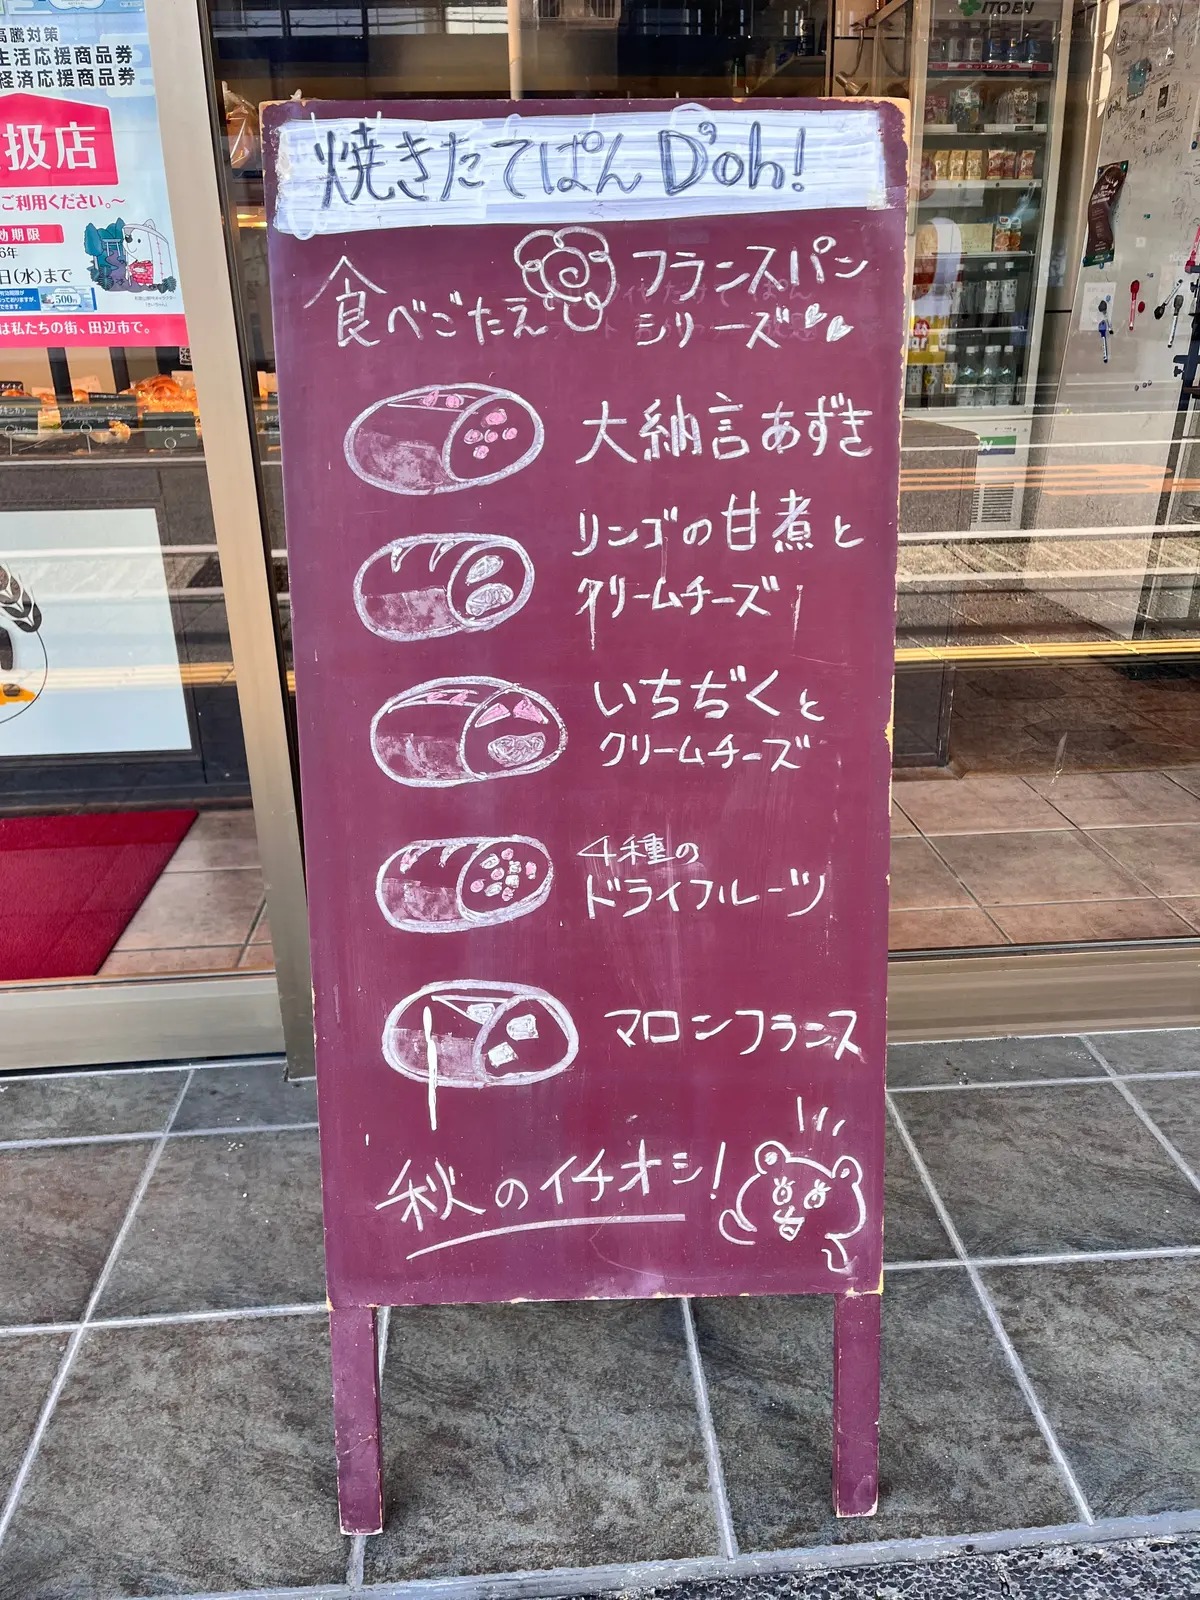 高騰対策
生活応援商品券
経済応援商品券
扱店
ご利用ください。～
効期限
6年
日(水)まで
500円
は私たちの街、田辺市で。
ITOEN
焼きたてぱん D'oh!
食べごたえ
フランスパン
シリーズ
大納言あずき
リンゴの甘煮と
クリームチーズ
いちぢくと
クリームチーズ
4種の
ドライフルーツ
マロンフランス
秋のイチオシ!